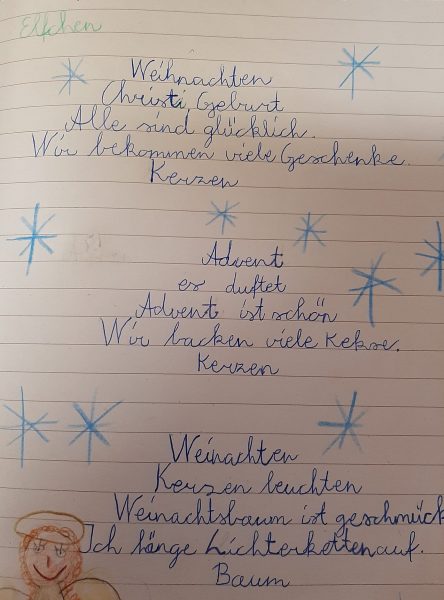 Elfchen
Weihnachten
Christi Geburt
Alle sind glücklich.
Wir bekommen viele Geschenke.
Kerzen
Advent
es duftet
Advent ist schön
Wir backen viele Kekse.
Kerzen
Weinachten
Kerzen leuchten
Weinachtsbaum ist geschmück
Ich hänge Lichterketten auf.
Baum